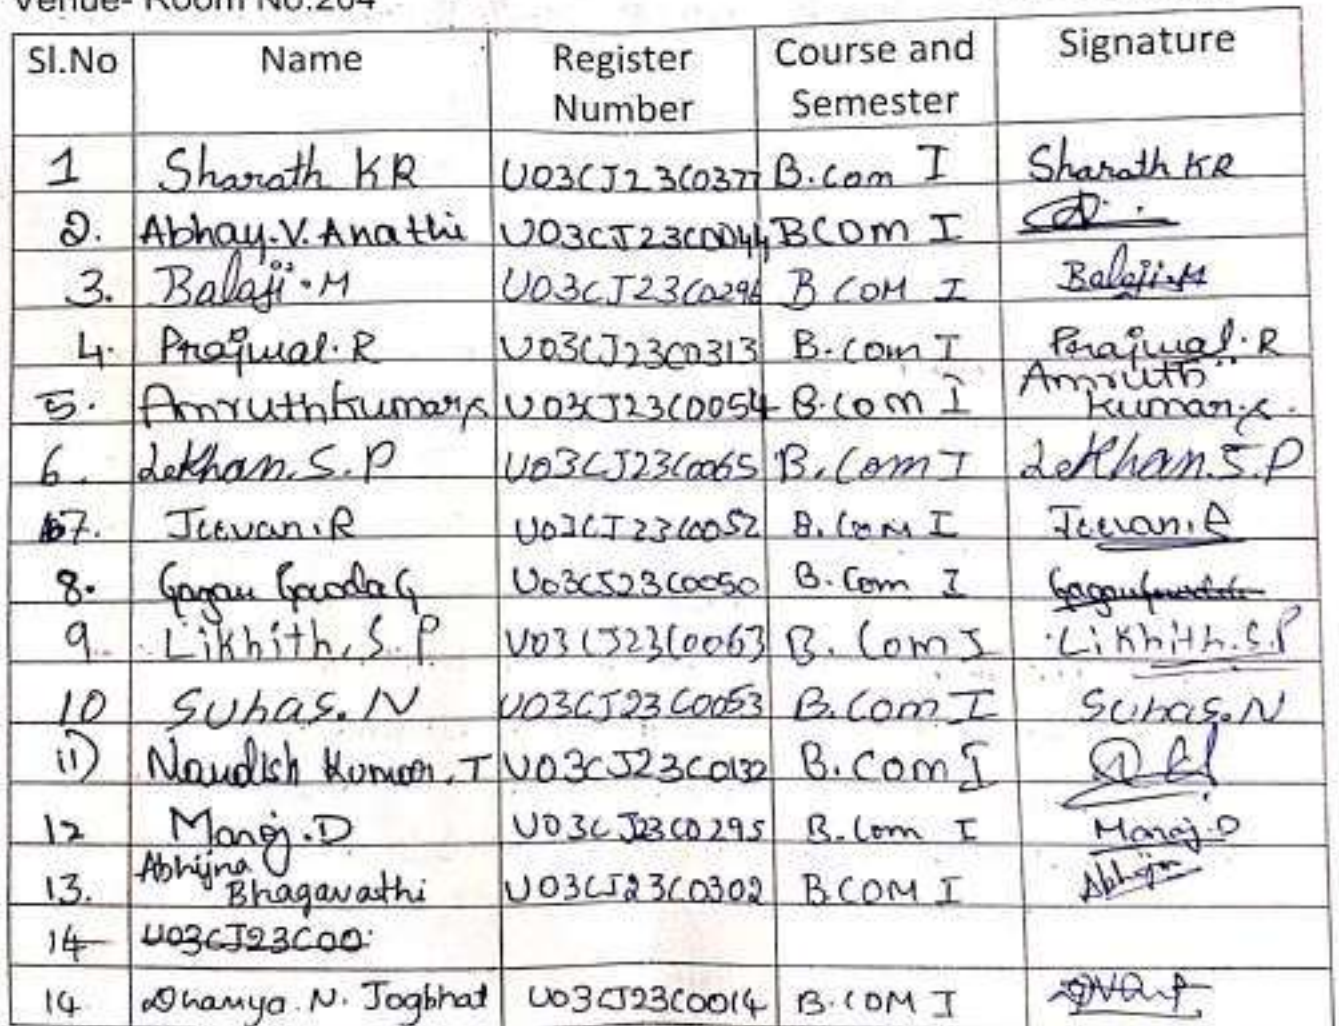 Venue- Room No.204
Sl.No Name Register Number Course and Semester Signature
1 Sharath KR U03CJ23C0377 B.com I Sharath KR
2. Abhay.V.Anathi U03CJ23C0044 BCom I
3. Balaji.M U03CJ23C0296 B COM I Balaji.M
4. Prajwal.R U03CJ23C0313 B.com I Prajwal.R
5. Amruthkumar U03CJ23C0054 B.com I Amruth kumar
6. Lekhan.S.P U03CJ23C0065 B.Com I Lekhan.S.P
7. Jeevan.R U03CJ23C0052 B.Com I Jeevan.R
8. Gagan Gowda G U03CJ23C0050 B.Com I
9. Likhith.S.P U03CJ23C0063 B.Com I Likhith.S.P
10 Suhas.N U03CJ23C0053 B.Com I Suhas.N
11) Nandish Kumar.T U03CJ23C0132 B.Com I
12 Manoj.D U03CJ23C0295 B.Com I Manoj.D
13. Abhijna Bhagavathi U03CJ23C0302 B.COM I Abhijna
14 U03CJ23C00
14. Dhanya.N.Jogbhat U03CJ23C0014 B.COM I